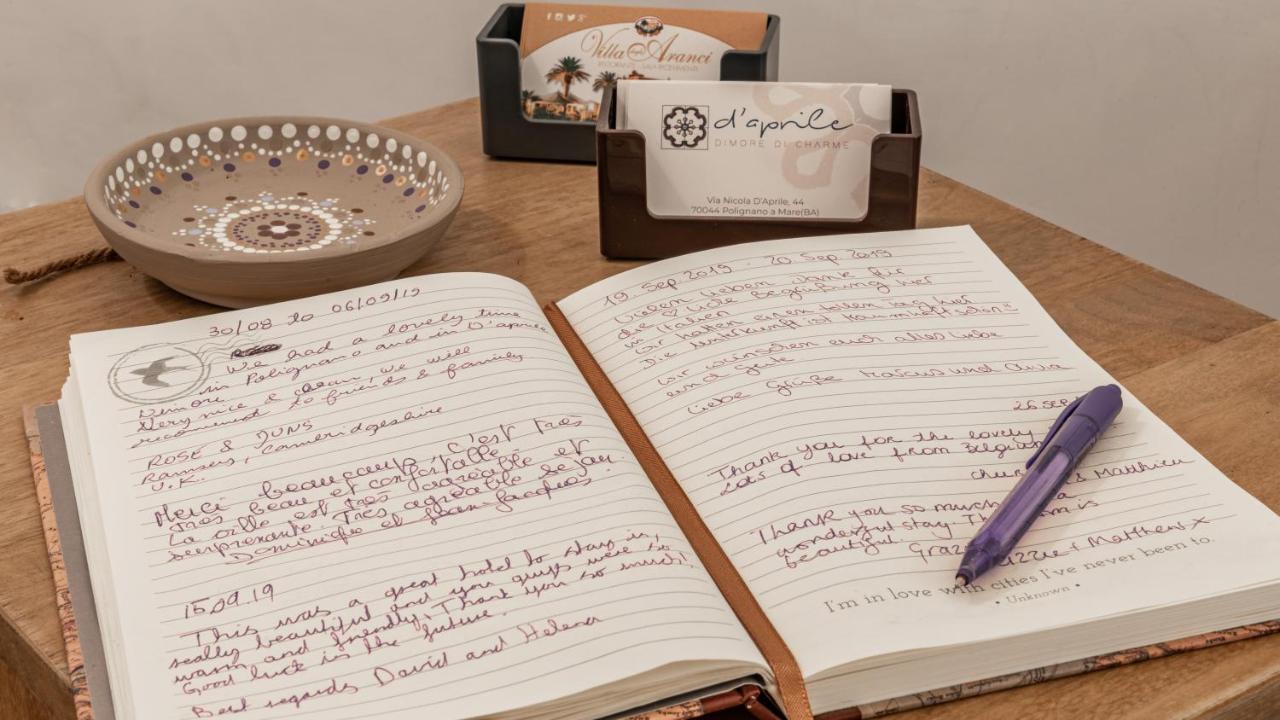 Villa degli Aranci
RISTORANTE - SALA RICEVIMENTI
d'aprile
DIMORE DI CHARME
Via Nicola D'Aprile, 44
70044 Polignano a Mare(BA)
30/08 to 06/09/19
We had a lovely time
in Polignano and in D'aprile
Dimore.
Very nice & clean. We will
recommend to friends & family
ROSE & JUNS
Ramsey, Cambridgeshire
U.K.
Merci beaucoup, c'est très
très beau et confortable.
La ville est très agréable et
surprenante. Très agréable séjour
Dominique et Jean Jacques
15.09.19
This was a great hotel to stay in,
really beautiful and you guys were so
warm and friendly. Thank you so much!
Good luck in the future.
Best regards David and Helena
19. Sep 2019 - 20 Sep 2019
Vielen lieben Dank für
die tolle Begrüßung hier
in Italien
Wir hatten einen tollen Tag hier
Die Unterkunft ist
wir wünschen euch alles liebe
und gute
Liebe Grüße Marcus und
26 sep
Thank you for the lovely
Lots of love from Belgium
& Matthieu
Thank you so much
wonderful stay. is
beautiful. Lizzie + Matthew x
I'm in love with cities I've never been to.
• Unknown •